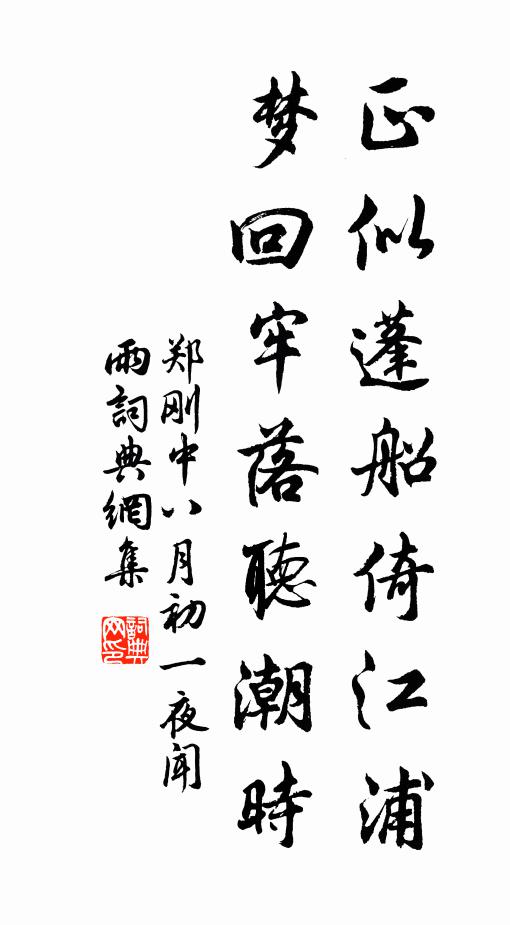 正似蓬船倚江浦
梦回牢落聴潮時
郑刚中八月初一夜闻
雨詞典網集
詞典网印